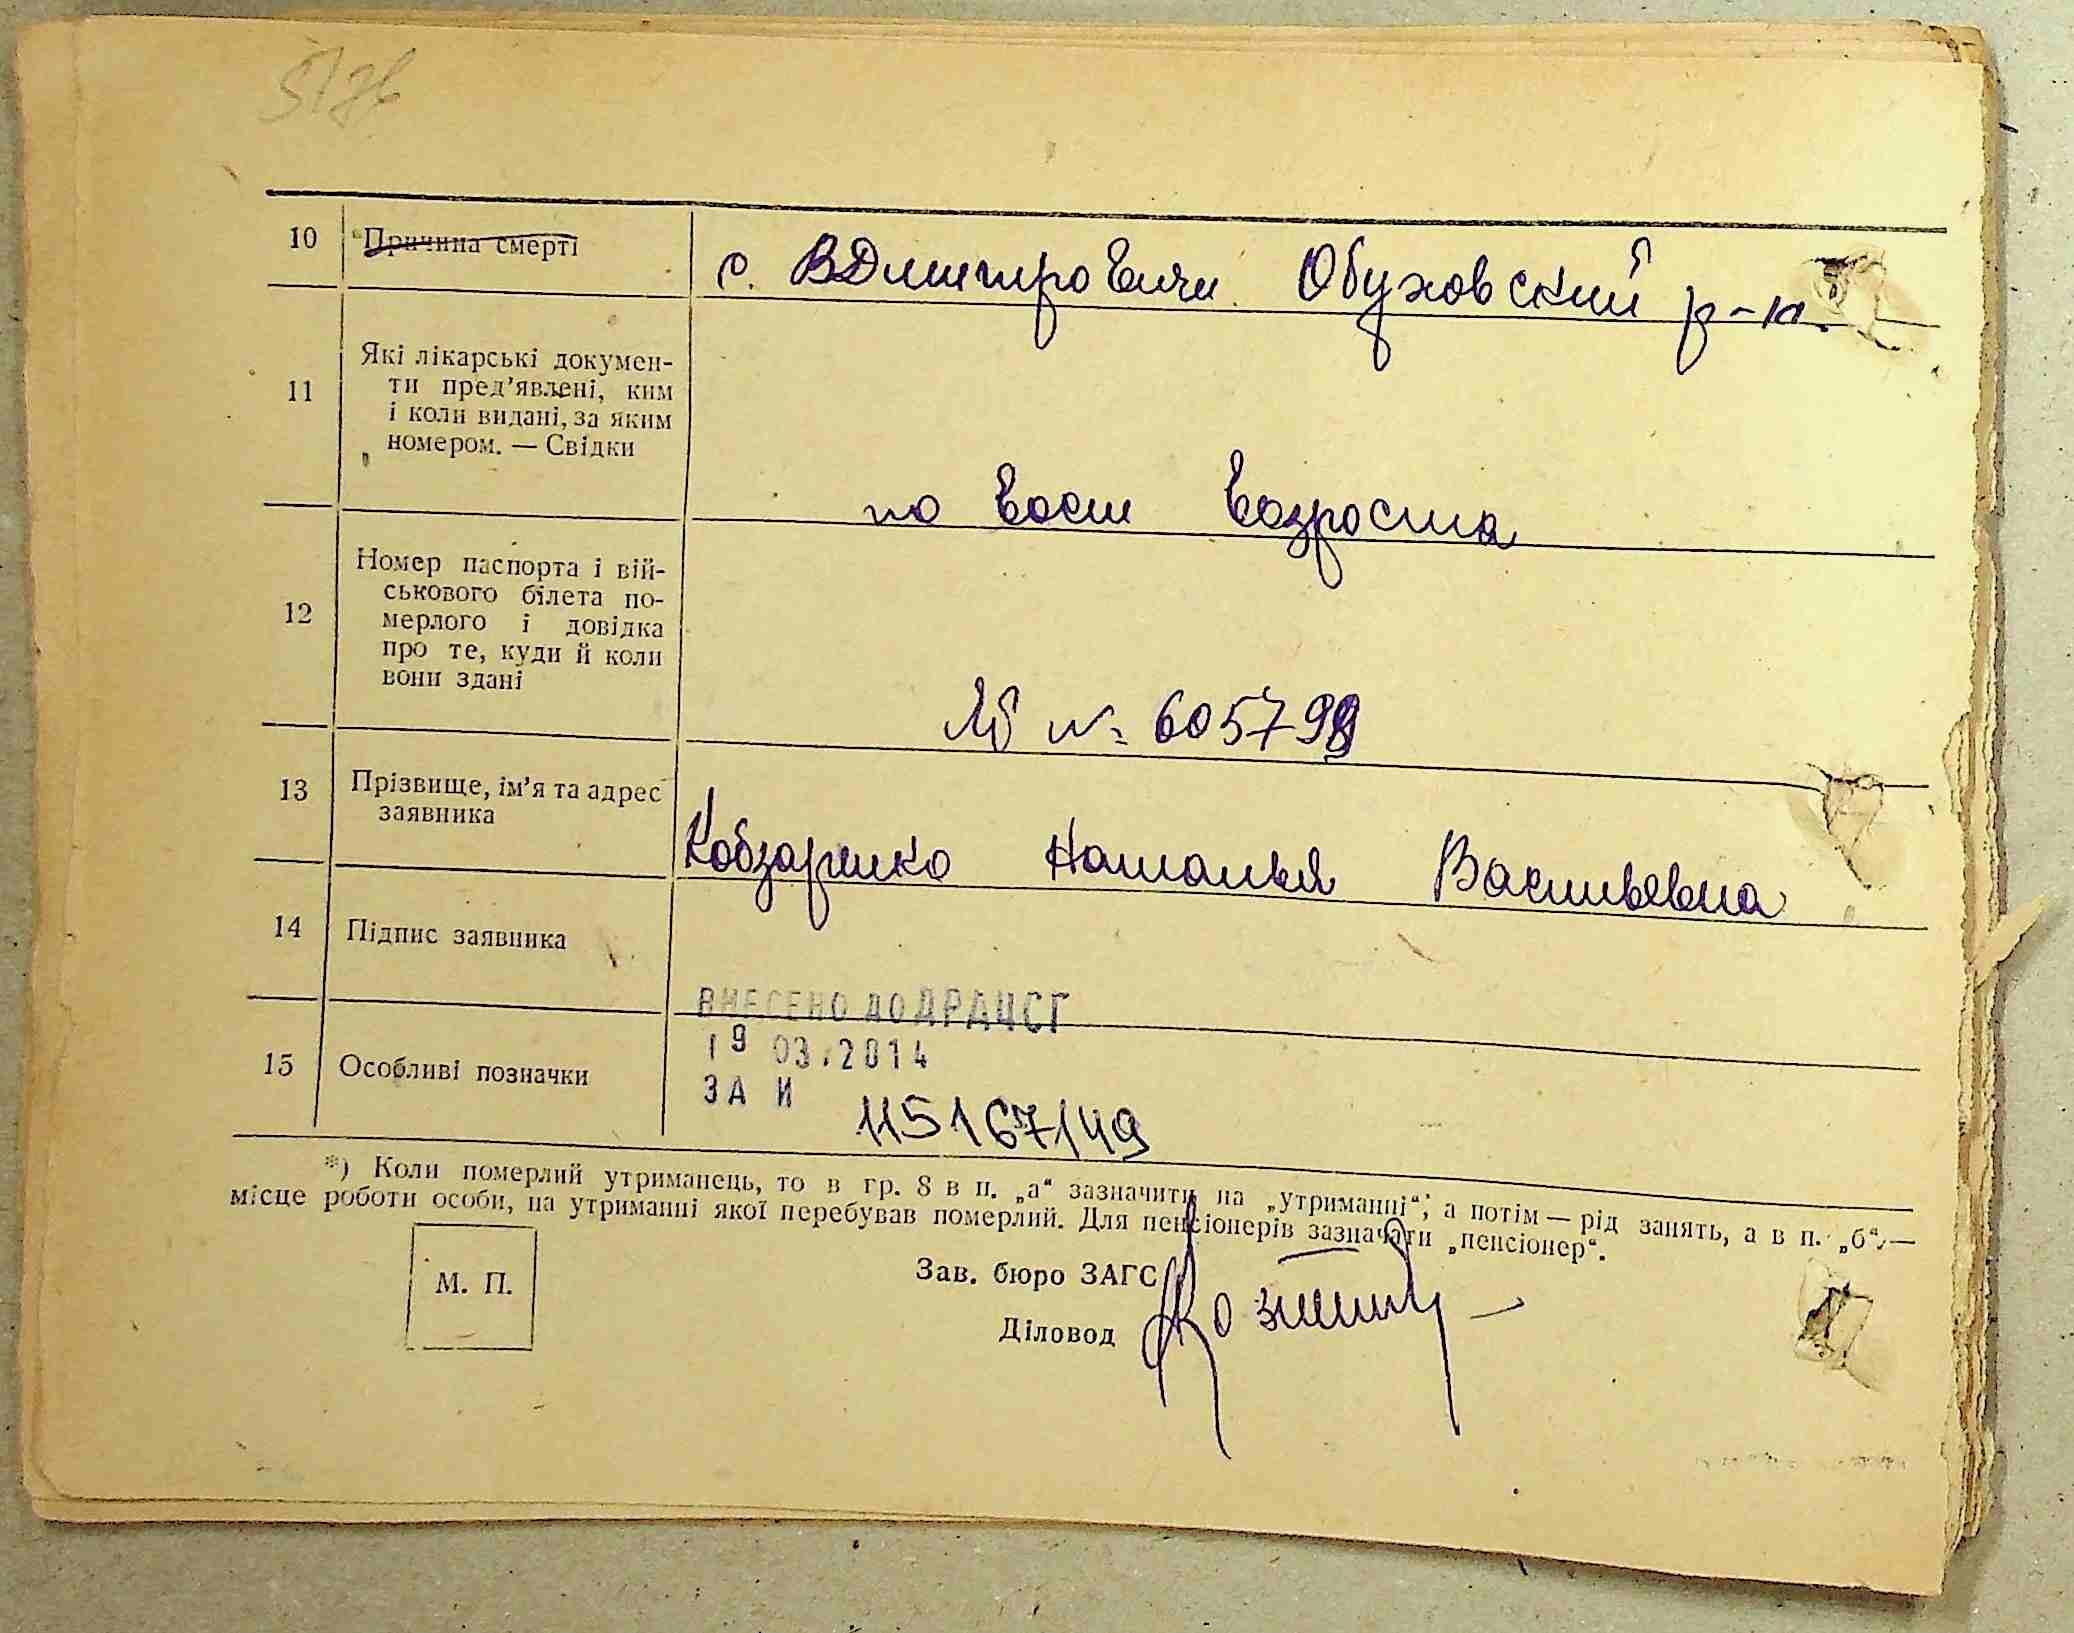 5176
10 Причина смерті с. ВДмитровичи Обуховский р-н.
11 Які лікарські докумен-
ти пред'явлені, ким
і коли видані, за яким
номером. — Свідки
по восст возроста
12 Номер паспорта і вій-
ськового білета по-
мерлого і довідка
про те, куди й коли
вони здані
№ 605798
13 Прізвище, ім'я та адрес
заявника
Кобзаренко Наталья Васильевна
14 Підпис заявника
ВНЕСЕНО ДО ДРАЦСГ
19 03.2014
15 Особливі позначки
ЗА И 115167149
*) Коли померлий утриманець, то в гр. 8 в п. „а“ зазначити на „утриманні“, а потім — рід занять, а в п. „б“ —
місце роботи особи, на утриманні якої перебував померлий. Для пенсіонерів зазначати „пенсіонер“.
М. П.
Зав. бюро ЗАГС
Діловод